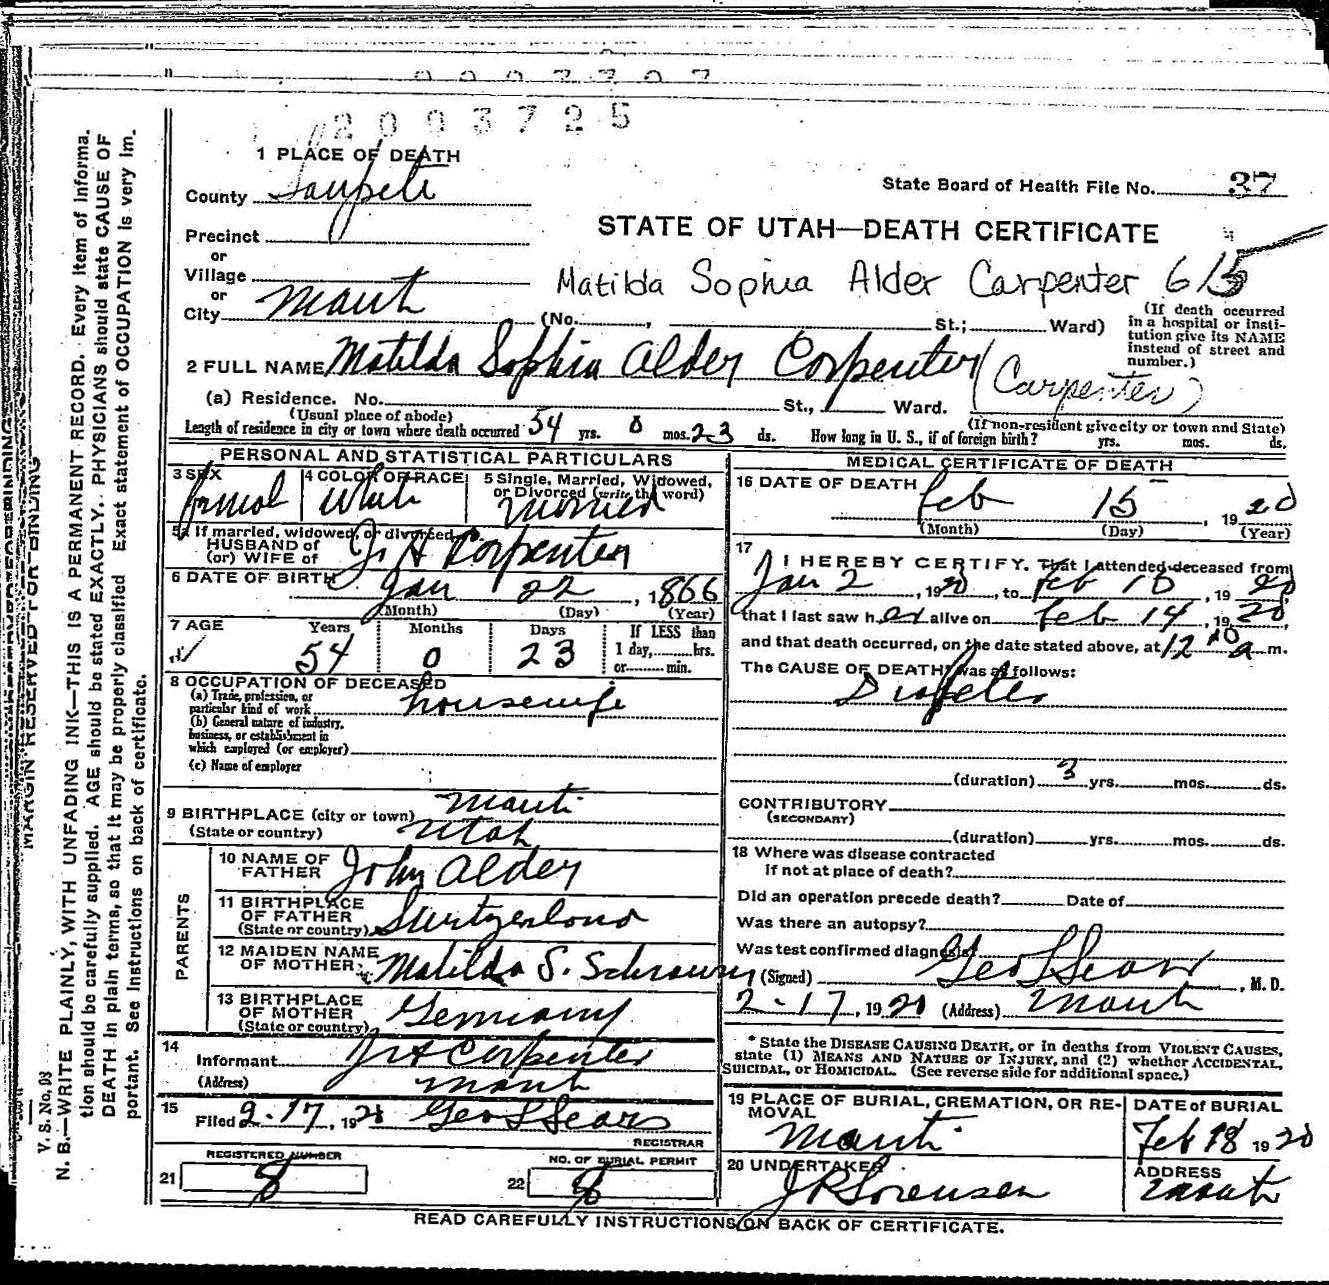 2003725
1 PLACE OF DEATH
County Sanpete
State Board of Health File No. 37
STATE OF UTAH—DEATH CERTIFICATE
Precinct
or
Village
Matilda Sophia Alder Carpenter 615
or
City Manti (No. , St.; Ward)
(If death occurred in a hospital or insti-tution give its NAME instead of street and number.)
2 FULL NAME Matilda Sophia Alder Corpenter (Carpenter)
(a) Residence. No. St., Ward.
(Usual place of abode) (If non-resident give city or town and State)
Length of residence in city or town where death occurred 54 yrs. 0 mos. 23 ds. How long in U. S., if of foreign birth? yrs. mos. ds.
PERSONAL AND STATISTICAL PARTICULARS
3 SEX
4 COLOR OR RACE White
5 Single, Married, Widowed,
or Divorced (write the word)
Married
5a If married, widowed, or divorced
HUSBAND of
(or) WIFE of J. H Corpenter
6 DATE OF BIRTH Jan 22, 1866
(Month) (Day) (Year)
7 AGE Years Months Days If LESS than
54 0 23 1 day, hrs.
or min.
8 OCCUPATION OF DECEASED
(a) Trade, profession, or
particular kind of work housewife
(b) General nature of industry,
business, or establishment in
which employed (or employer)
(c) Name of employer
9 BIRTHPLACE (city or town) Manti
(State or country) Utah
PARENTS
10 NAME OF
FATHER John Alder
11 BIRTHPLACE
OF FATHER
(State or country) Switzerland
12 MAIDEN NAME
OF MOTHER Matilda S.
13 BIRTHPLACE
OF MOTHER
(State or country) Germany
14
Informant J H Corpenter
(Address) Manti
15
Filed 2-17, 1920 Geo L Sears
REGISTRAR
REGISTERED NUMBER
21 8
NO. OF BURIAL PERMIT
22 8
MEDICAL CERTIFICATE OF DEATH
16 DATE OF DEATH Feb 15, 1920
(Month) (Day) (Year)
17
I HEREBY CERTIFY. That I attended deceased from
Jan 2, 1920, to Feb 1920
that I last saw her alive on Feb 14, 1920,
and that death occurred, on the date stated above, at 12 a m.
The CAUSE OF DEATH* was as follows:
Diabetes
(duration) 3 yrs. mos. ds.
CONTRIBUTORY
(SECONDARY)
(duration) yrs. mos. ds.
18 Where was disease contracted
if not at place of death?
Did an operation precede death? Date of
Was there an autopsy?
Was test confirmed diagnosis?
(Signed) Geo L Sears, M. D.
2-17, 1920 (Address) Manti
* State the DISEASE CAUSING DEATH, or in deaths from VIOLENT CAUSES,
state (1) MEANS AND NATURE OF INJURY, and (2) whether ACCIDENTAL,
SUICIDAL, or HOMICIDAL. (See reverse side for additional space.)
19 PLACE OF BURIAL, CREMATION, OR RE-
MOVAL
Manti
DATE of BURIAL
Feb 18 1920
20 UNDERTAKER
J R Sorensen
ADDRESS
Manti
READ CAREFULLY INSTRUCTIONS ON BACK OF CERTIFICATE.
MARGIN RESERVED FOR BINDING
V. S. No. 98
N. B.—WRITE PLAINLY, WITH UNFADING INK—THIS IS A PERMANENT RECORD. Every item of informa.
tion should be carefully supplied. AGE should be stated EXACTLY. PHYSICIANS should state CAUSE OF
DEATH in plain terms, so that it may be properly classified Exact statement of OCCUPATION is very im.
portant. See Instructions on back of certificate.